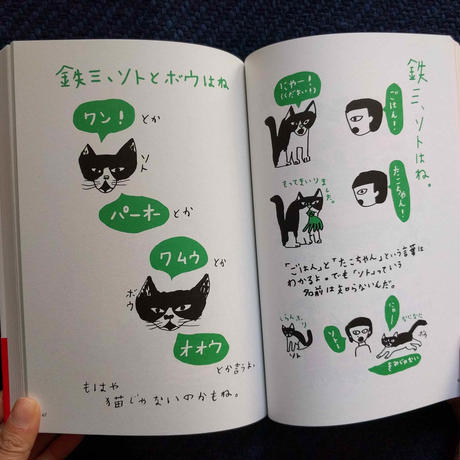 鉄三、ソトとボウはね
ワン!
とか
ソト
パーオー
とか
ワムウ
とか
ボウ
オオウ
とか言うよ。
もはや
猫じゃないのかもね。
鉄三、ソトはね。
にゃー!
(くださいう)
ごはん!
もってまいりました。
たこちゃん!
「ごはん」と「たこちゃん」という言葉は
わかるよ。でも「ソト」っていう
名前は知らないんだ。
しらんぷり
ソト
ソトー
ボウ